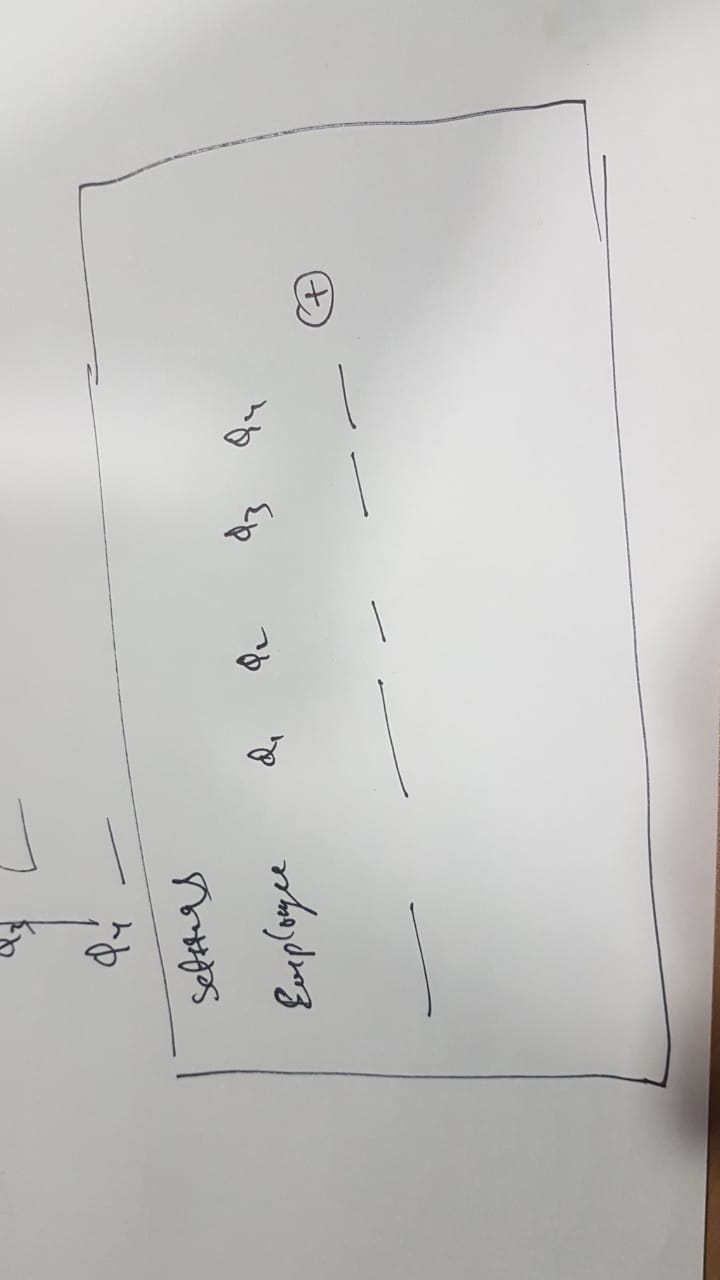 Q3
Q4
Settings
Employee Q1 Q2 Q3 Q4
+